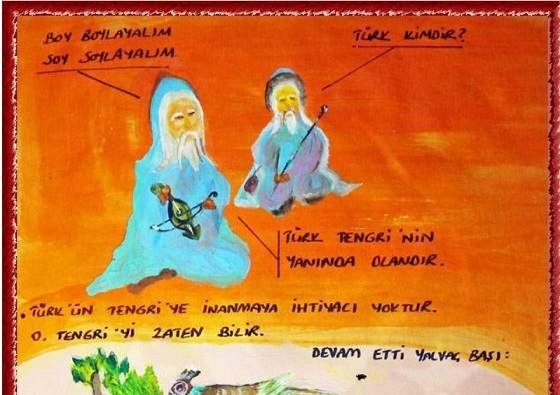 BOY BOYLAYALIM
SOY SOYLAYALIM
TÜRK KİMDİR?
TÜRK TENGRİ'NİN
YANINDA OLANDIR.
. TÜRK'ÜN TENGRİ'YE İNANMAYA İHTİYACI YOKTUR.
O. TENGRİ'Yİ ZATEN BİLİR.
DEVAM ETTİ YALVAÇ BAŞI: